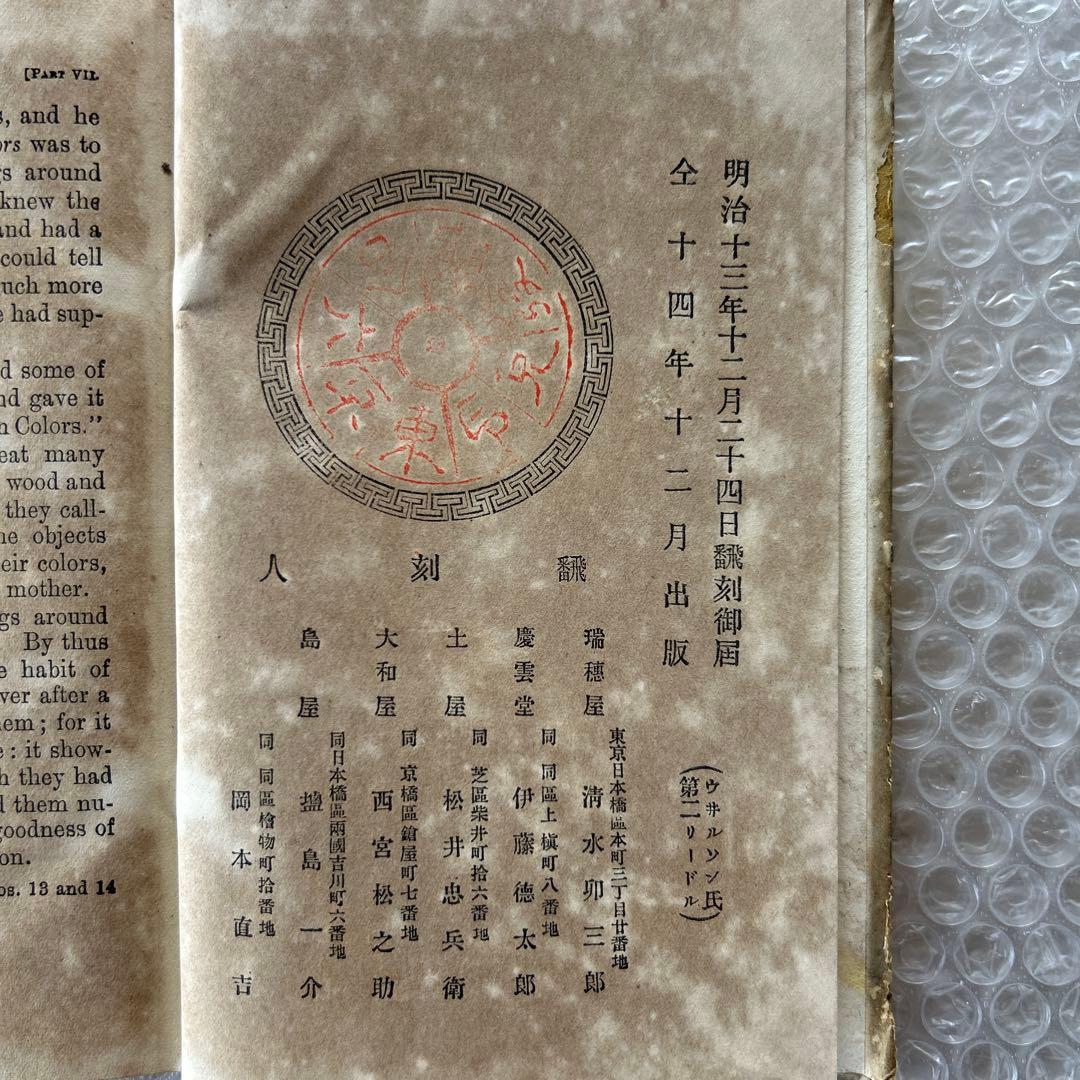 [PART VII.
s, and he
ors was to
gs around
knew the
and had a
could tell
uch more
e had sup-
d some of
nd gave it
n Colors."
eat many
wood and
they call-
ne objects
eir colors,
mother.
gs around
By thus
e habit of
ver after a
em; for it
e: it show-
h they had
d them nu-
goodness of
on.
os. 13 and 14
明治十三年十二月二十四日飜刻御屆
仝十四年十二月出版
(ウヰルソン氏
第二リードル)
飜刻人
東京日本橋區本町三丁目廿番地
瑞穗屋 清水卯三郎
同 同區上槇町八番地
慶雲堂 伊藤德太郎
同 芝區柴井町拾六番地
土屋 松井忠兵衛
同 京橋區鎗屋町七番地
大和屋 西宮松之助
同日本橋區兩國吉川町六番地
島屋 鹽島一介
同 同區檜物町拾番地
岡本直吉
東